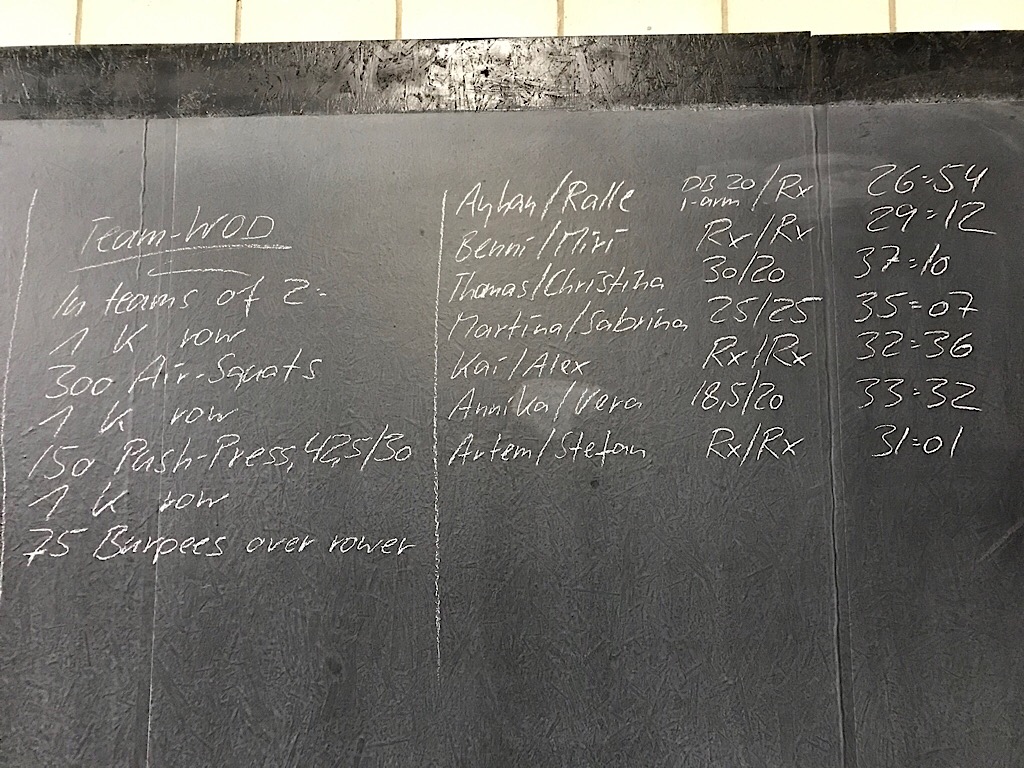 Team-WOD
In teams of 2:
1 K row
300 Air-Squats
1 K row
150 Push-Press, 42,5/30
1 K row
75 Burpees over rower
Ayhan/Ralle DB 20/Rx 26:54
1-arm
Benni/Miri Rx/Rx 29:12
Thomas/Christina 30/20 37:10
Martina/Sabrina 25/25 35:07
Kai/Alex Rx/Rx 32:36
Annika/Vera 18,5/20 33:32
Artem/Stefan Rx/Rx 31:01